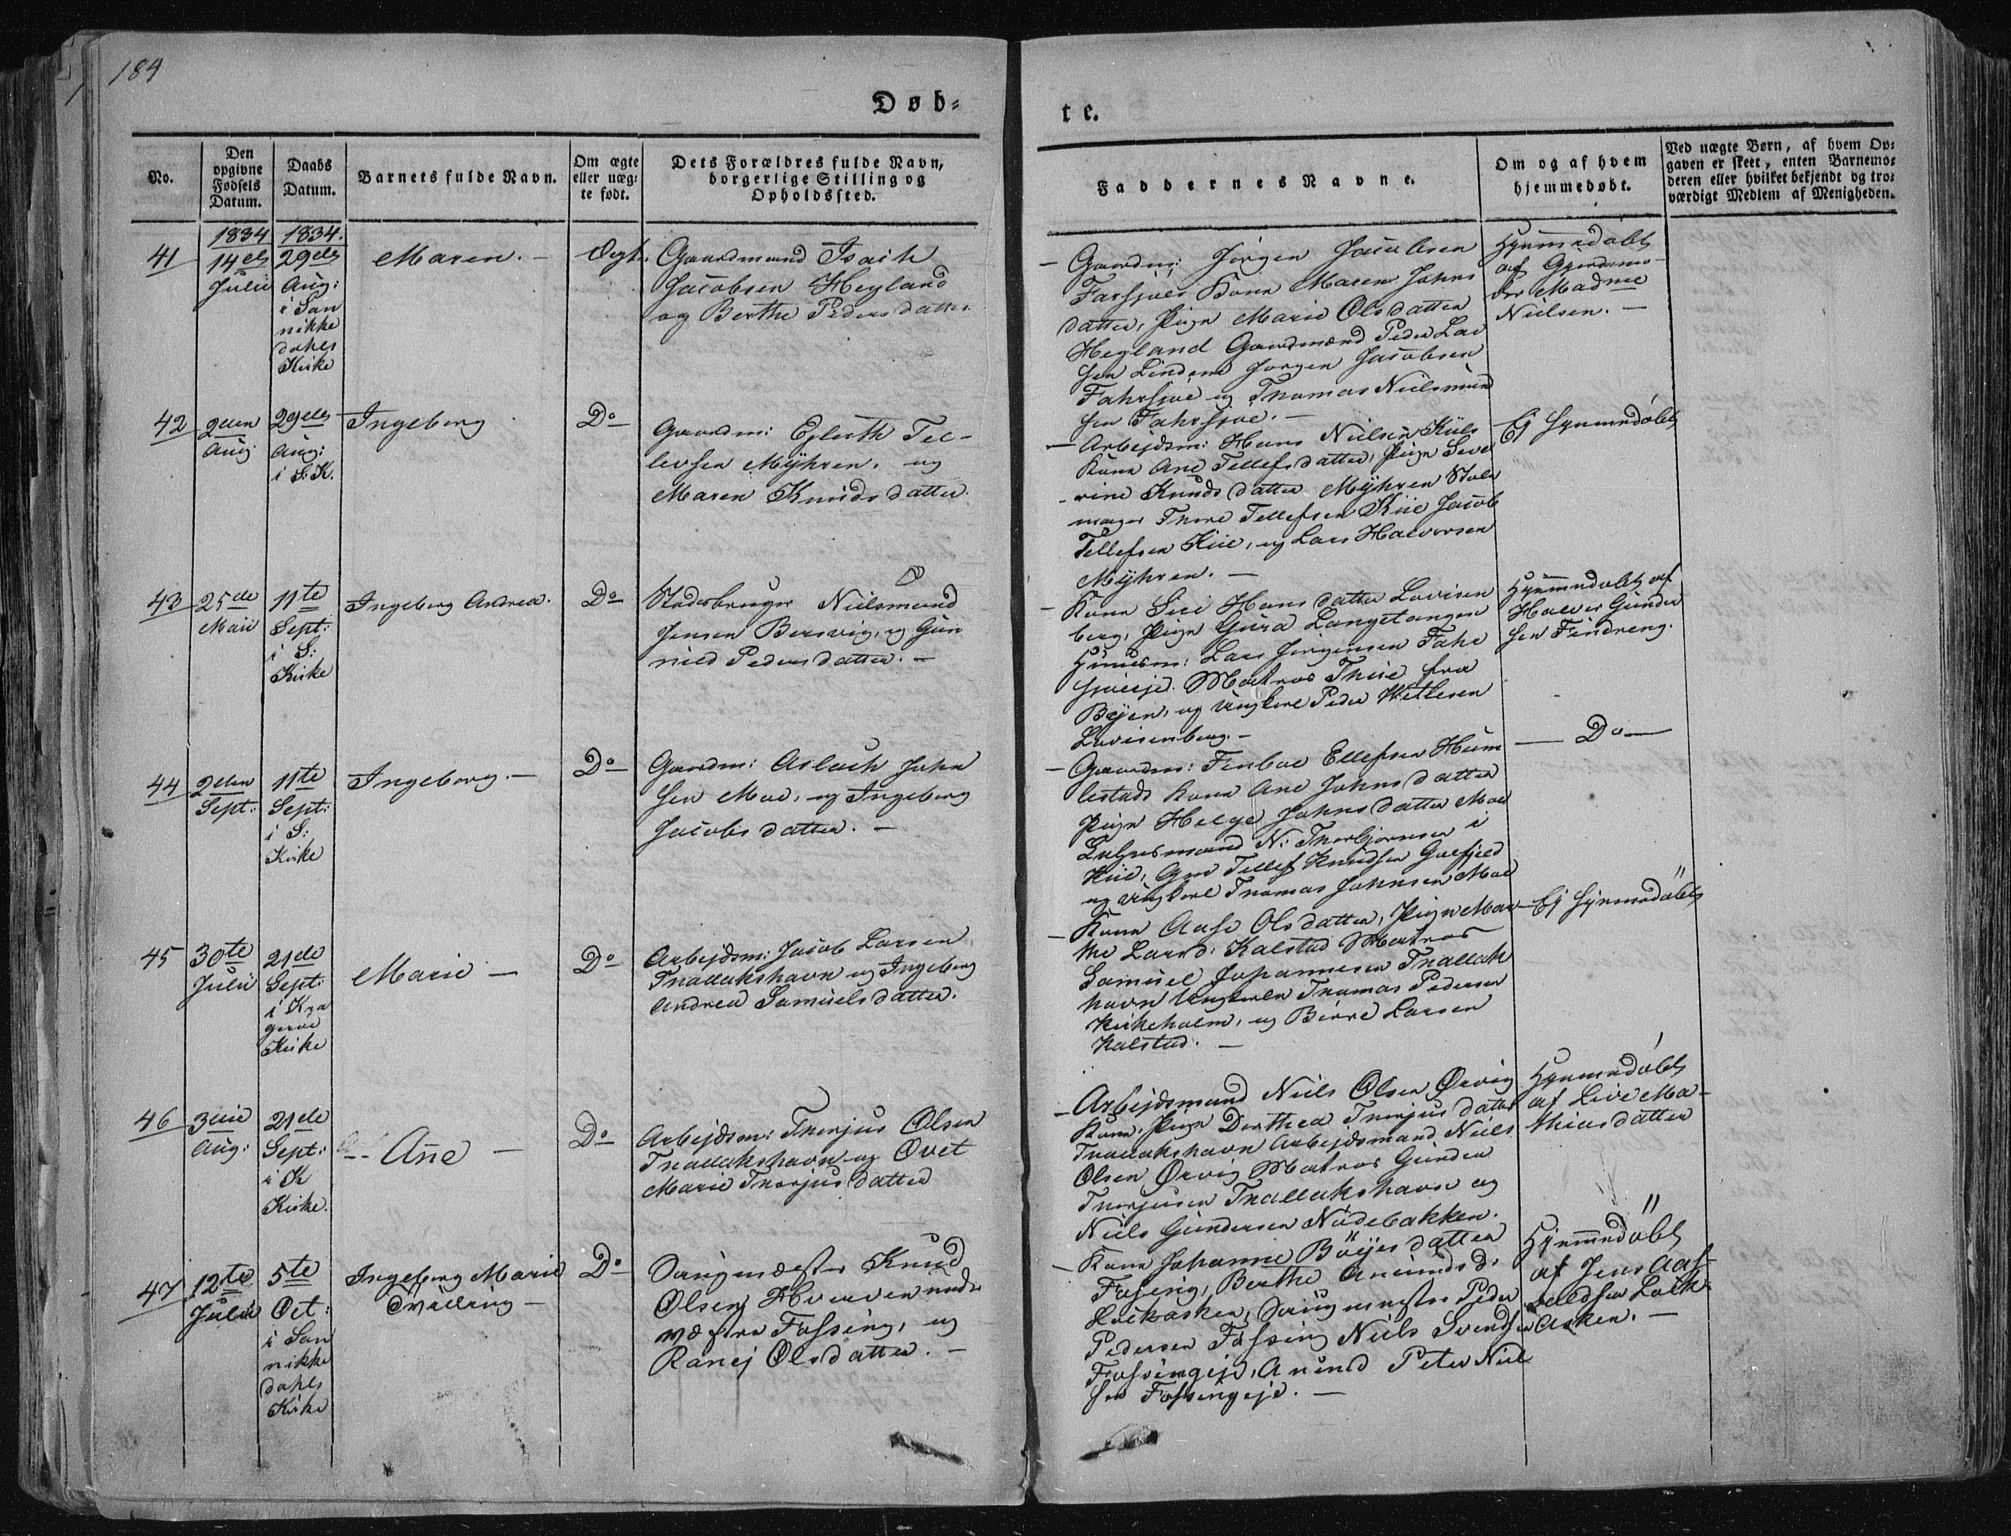 184
Døb-
te.
No.
Den
opgivne
Fødsels
Datum.
Daabs
Datum.
Barnets fulde Navn.
Om ægte
eller uæg-
te født.
Dets Forældres fulde Navn,
borgerlige Stilling og
Opholdssted.
Faddernes Navne.
Om og af hvem
hjemmedøbt.
Ved uægte Børn, af hvem Op-
gaven er skeet, enten Barnemo-
deren eller hvilket bekjendt og tro-
værdigt Medlem af Menigheden.
1834 1834.
41
14de
Julii
29de
Aug:
i San
nikke
dahls
Kirke
Maren. -
Ægt.
Gaardmand Isach
Jacobsen Hegland
og Berthe Pedersdatter.
- Gaardm: Jörgen Jacobsen
Farsjøes Kone Maren Johns
datter, Pige Marie Olsdatter
Hegland Gaardmænd Peder Lar
sen Lindem Jørgen Jacobsen
Fahrsjøe og Thomas Nielsmün
sen Fahrsjøe. -
Hjemmedøbt
af Gjordemo-
der Madme
Nielsen. -
42
2den
Aug
29de
Aug:
i S: K.
Ingeborg
Do
Gaardm: Eylerth Tel-
levsen Mÿhren. og
Maren Knudsdatter.
- Arbejdsm: Hans Nielsen Kiils
Kone Ane Tellefsdatter, Pige Seve
rine Knudsdatter Mÿhren Stole
mager Thore Tellefsen Kiil Jacob
Tellefsen Kiil, og Lars Halvorsen
Mÿhren. -
Ej hjemmedøbt
43
25de
Maii
11te
Sept:
i S:
Kirke
Ingeborg Andrea.
Do
Stedsbruger Nielsmand
Jensen Bersvig, og Gun
nild Pedersdatter. -
- Kone Siri Hansdatter Lovisen
berg, Pige Gura Langetangen
Huusm: Lars Jörgensen Fahr
sjøeeje. Matros Thiie fra
Bejen, og Ungkarl Peder Kittelsen
Lovisenberg. -
Hjemmedøbt af
Halvor Gunder
sen Findreng.
44
2den
Sept:
11te
Sept:
i S:
Kirke
Ingeborg. -
Do
Gaardm: Aslach John
sen Moe, og Ingeborg
Jacobsdatter. -
- Gaardm: Finboe Ellefsen Hum
lestads Kone Ane Johnsdatter
Pige Helge Johnsdatter Moe
Lehnsmand N: Thorbjørnsen i
Kiil, Gmd Tellef Knudsen Gulfjeld
og Ungkarl Thomas Johnsen Moe
- Do -
45
30te
Julii
21de
Sept:
i Kra
gerøe
Kirke
Marie -
Do
Arbejdsm: Jacob Larsen
Thallakshavn og Ingeborg
Andrea Samuelsdatter.
- Kone Aase Olsdatter, Pige Mar
the Larsd: Kalstad Matros
Samuel Johannesen Thallak
havn Ungkarle Thomas Pedersen
Kirkeholm, og Børre Larsen
Kalstad. -
Ej hjemmedöbt
46
3die
Aug:
21de
Sept:
i K
Kirke.
Ane -
Do
Arbejdsm: Thorjus Olsen
Thallakshavn og Øvet
Marie Thorjusdatter
- Arbejdsmand Niels Olsen Ørvig
Kone, Pige Dorthea Thorjusdatter
Thallakshavn Arbejdsmand Niels
Olsen Ørvig Matros Gunder
Thorjusen Thallakshavn og
Niels Gundersen Nødebakken.
Hjemmedøbt
af Live Ma-
thiasdatter
47
12te
Julii
5te
Oct:
i San
nikke
dahls
Kirke
Ingeborg Marie
Tvilling -
Do
Saugmester Knud
Olsen
fra Fossing, og
Ranej Olsdatter. -
- Kone Johanne Böÿesdatter
Fossing, Berthe Anundsd:
Saugmester Peder
Pedersen Fossing Niels Svendsen
Fossingeje, Anund Peter Niel
sen Fossingeje. -
Hjemmedöbt
af Jens Aas-